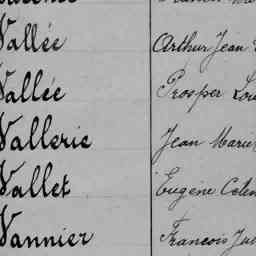 Vallée Arthur Jean
Vallée Prosper
Vallerie Jean Marie
Vallet Eugène
Vannier Francois